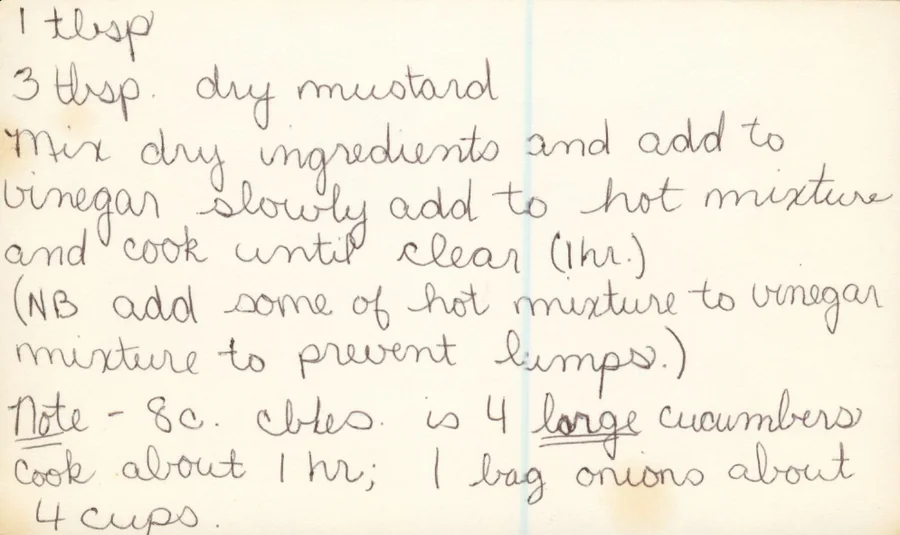 1 tbsp
3 tbsp. dry mustard
Mix dry ingredients and add to
vinegar slowly add to hot mixture
and cook until clear (1hr.)
(NB add some of hot mixture to vinegar
mixture to prevent lumps.)
Note - 8c. cbkes. is 4 large cucumbers
cook about 1 hr; 1 bag onions about
4 cups.